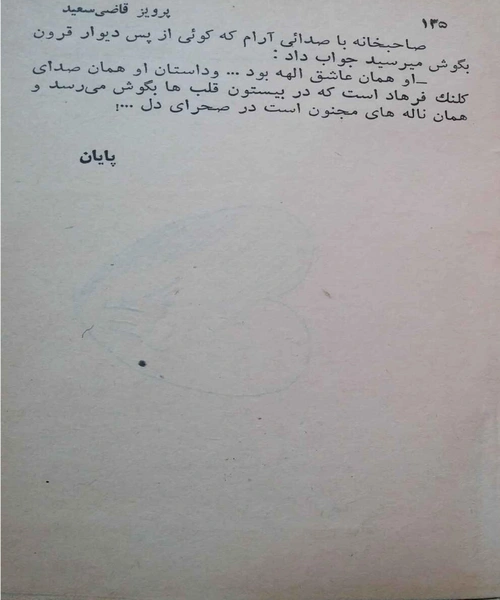 ۱۳۵
پرویز قاضی‌سعید
صاحبخانه با صدائی آرام که کوئی از پس دیوار قرون
بگوش میرسید جواب داد :
_او همان عاشق الهه بود ... وداستان او همان صدای
کلنك فرهاد است که در بیستون قلب ها بگوش می‌رسد و
همان ناله های مجنون است در صحرای دل ...!
پایان